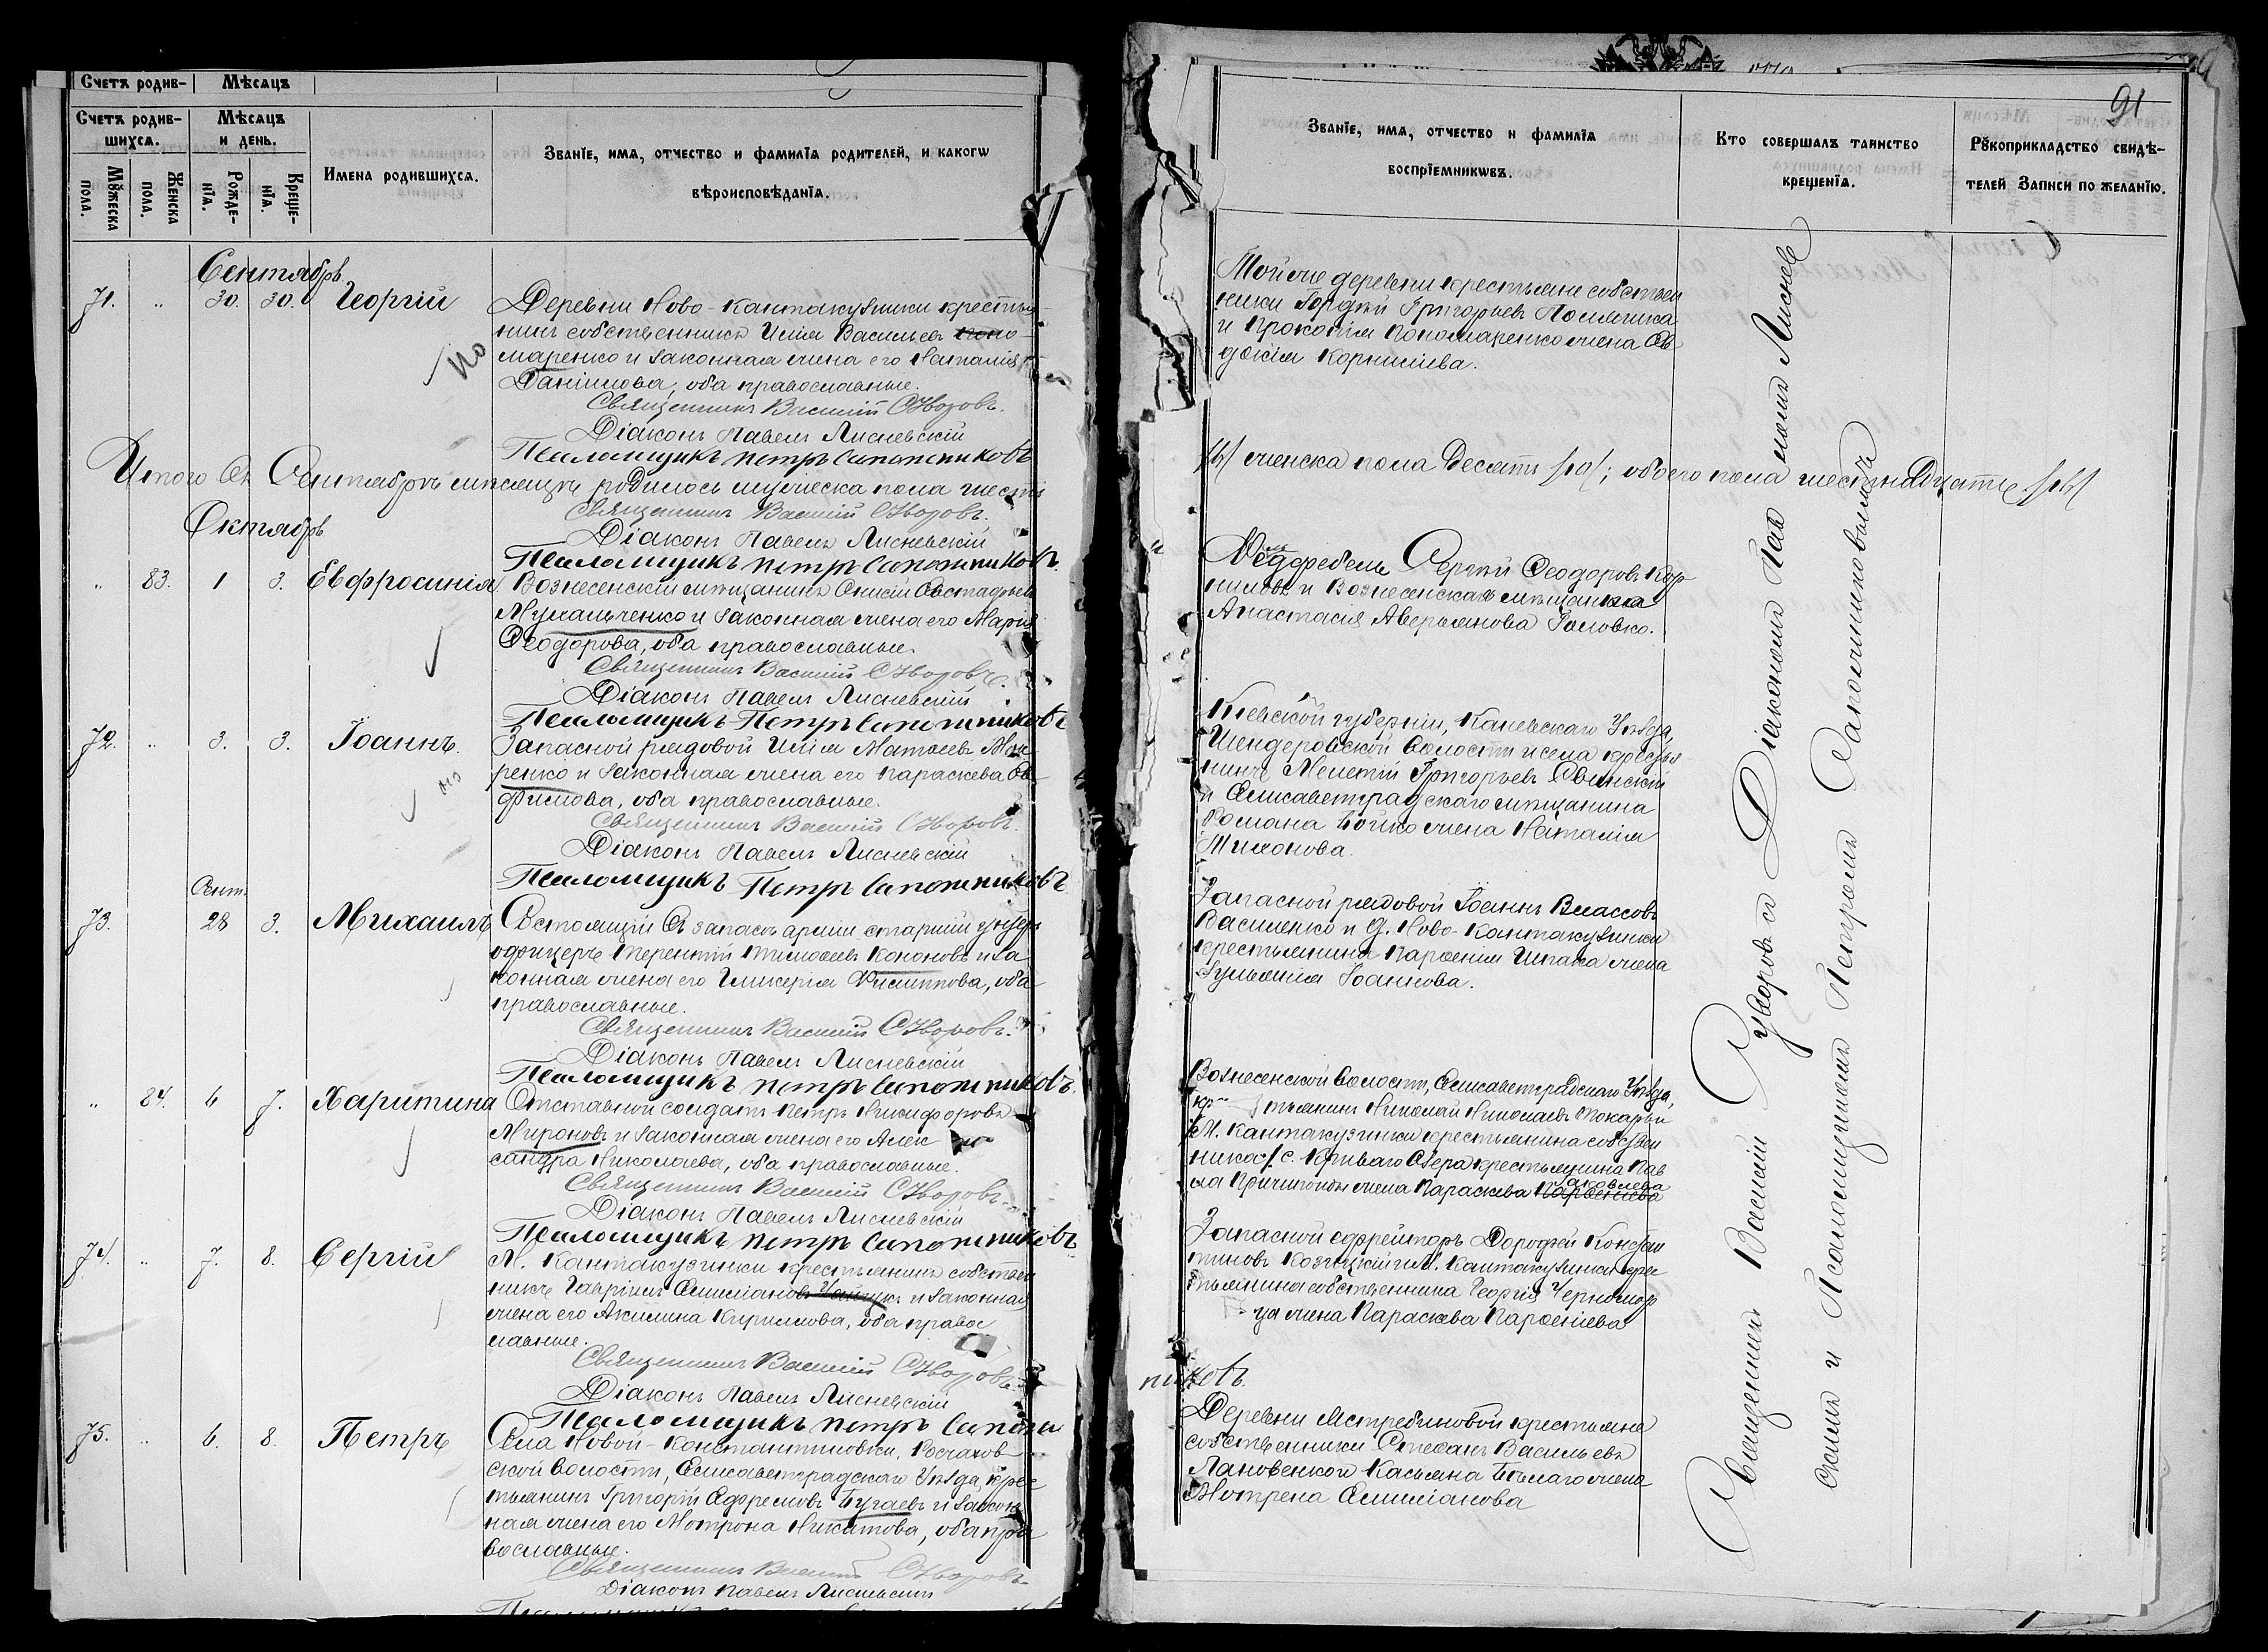 Счетъ родив-
Мѣсяцъ
Счетъ родив-
шихся.
Мѣсяцъ
и день.
Имена родившихся.
Званїе, имя, отчество и фамилїя родителей, и какогѡ
вѣроисповѣданїя.
Мꙋжеска
пола.
Женска
пола.
Рожде-
нїя.
Креще-
нїя.
Сентябрь
71. " 30. 30. Георгій
Деревни Ново-Кантакузинки крестья-
нинъ собственникъ Илія Васильевъ Поно-
маренко и законная жена его Наталія
Даніилова, оба православные.
Священникъ Василій Суворовъ.
Діаконъ Павелъ Лисневскій
Псаломщикъ Петръ Сапожниковъ
Итого въ Сентябрѣ мѣсяцѣ родилось мужеска пола шесть
Священникъ Василій Суворовъ.
Діаконъ Павелъ Лисневскій
Псаломщикъ Петръ Сапожниковъ.
Октябрь
" 83. 1 3. Евфросинія
Вознесенскій мѣщанинъ Евстафьевъ
Михальченко и законная жена его Марія
Ѳеодорова, оба православные.
Священникъ Василій Суворовъ.
Діаконъ Павелъ Лисневскій
Псаломщикъ Петръ Сапожниковъ
72. " 3. 3. Іоаннъ.
Запасной рядовой Илія Матѳеевъ
ренко и законная жена его Параскева Ев-
фимова, оба православные.
Священникъ Василій Суворовъ.
Діаконъ Павелъ Лисневскій
Псаломщикъ Петръ Сапожниковъ
Сент.
73. 28 3. Михаилъ
Состоящій въ запасѣ арміи старшій унтеръ
офицеръ Терентій Тимоѳеевъ Кононовъ и за-
конная жена его Гликерія Филиппова, оба
православные.
Священникъ Василій Суворовъ.
Діаконъ Павелъ Лисневскій
Псаломщикъ Петръ Сапожниковъ.
" 84. 6 7. Харитина
Отставной солдатъ Петръ Никифоровъ
Мироновъ и законная жена его Алек
сандра Николаева, оба православные.
Священникъ Василій Суворовъ.
Діаконъ Павелъ Лисневскій
Псаломщикъ Петръ Сапожниковъ
74. " 7. 8. Сергій
М. Кантакузинки крестьянинъ собствен
никъ Гавріилъ Емиліановъ и законная
жена его Акилина Кириллова, оба право
славные.
Священникъ Василій Суворовъ.
Діаконъ Павелъ Лисневскій
Псаломщикъ Петръ Сапож
75. " 6. 8. Петръ
Села Новой-Константиновки,
ской волости, Елисаветградскаго уѣзда, крес
тьянинъ Григорій Ефремовъ Бугаевъ и закон
ная жена его Мотрона Никитова, оба пра
вославные.
Священникъ Василій Суворовъ
Діаконъ Павелъ Лисневскій
91
Званїе, имя, отчество и фамилїя
воспрїемникѡвъ.
Кто совершалъ таинство
крещенїя.
Рꙋкоприкладство свидѣ-
телей Записи по желанїю.
Той же деревни крестьяне собствен
ники Гордій Григорьевъ
и Прокопія Пономаренко жена Ев
докія Корниліева.
/6/ женска пола десять /10/; обоего пола шестнадцать /16/
Фельдфебель Сергій Ѳеодоровъ Кор
ниловъ и Вознесенская мѣщанка
Анастасія Аверьянова Головко.
Кіевской губерніи, Каневскаго Уѣзда,
Шендеровской волости и села крестья
нинъ Мелетій Григорьевъ
и Елисаветградскаго мѣщанина
Романа Бойко жена Наталія
Тихонова.
Запасной рядовой Іоаннъ Власовъ
Василенко и д. Ново-Кантакузинки
крестьянина Парѳенія Шпака жена
Іуліанія Іоаннова.
Вознесенской волости, Елисаветградскаго Уѣзда,
кр тьянинъ Николай Николаевъ Токарь и
М. Кантакузинки крестьянина собствен
ника /с. Криваго Озера крестьянина Пав
ла жена Параскева Парѳеніева
Яковлева
Запасной ефрейторъ Дороѳей Констан
тиновъ и М. Кантакузинки крес
тьянина собственника Георгія Черномор
ца жена Параскева Парѳеніева
никовъ.
Деревни Ястребиновой крестьяне
собственники Стефанъ Васильевъ
Лановенко и Касьяна Бѣлаго жена
Мотрена Емиліанова
Священникъ Василій Суворовъ съ Діакономъ Пав ломъ Лиснев
скимъ и Псаломщикомъ Петромъ Сапожниковымъ